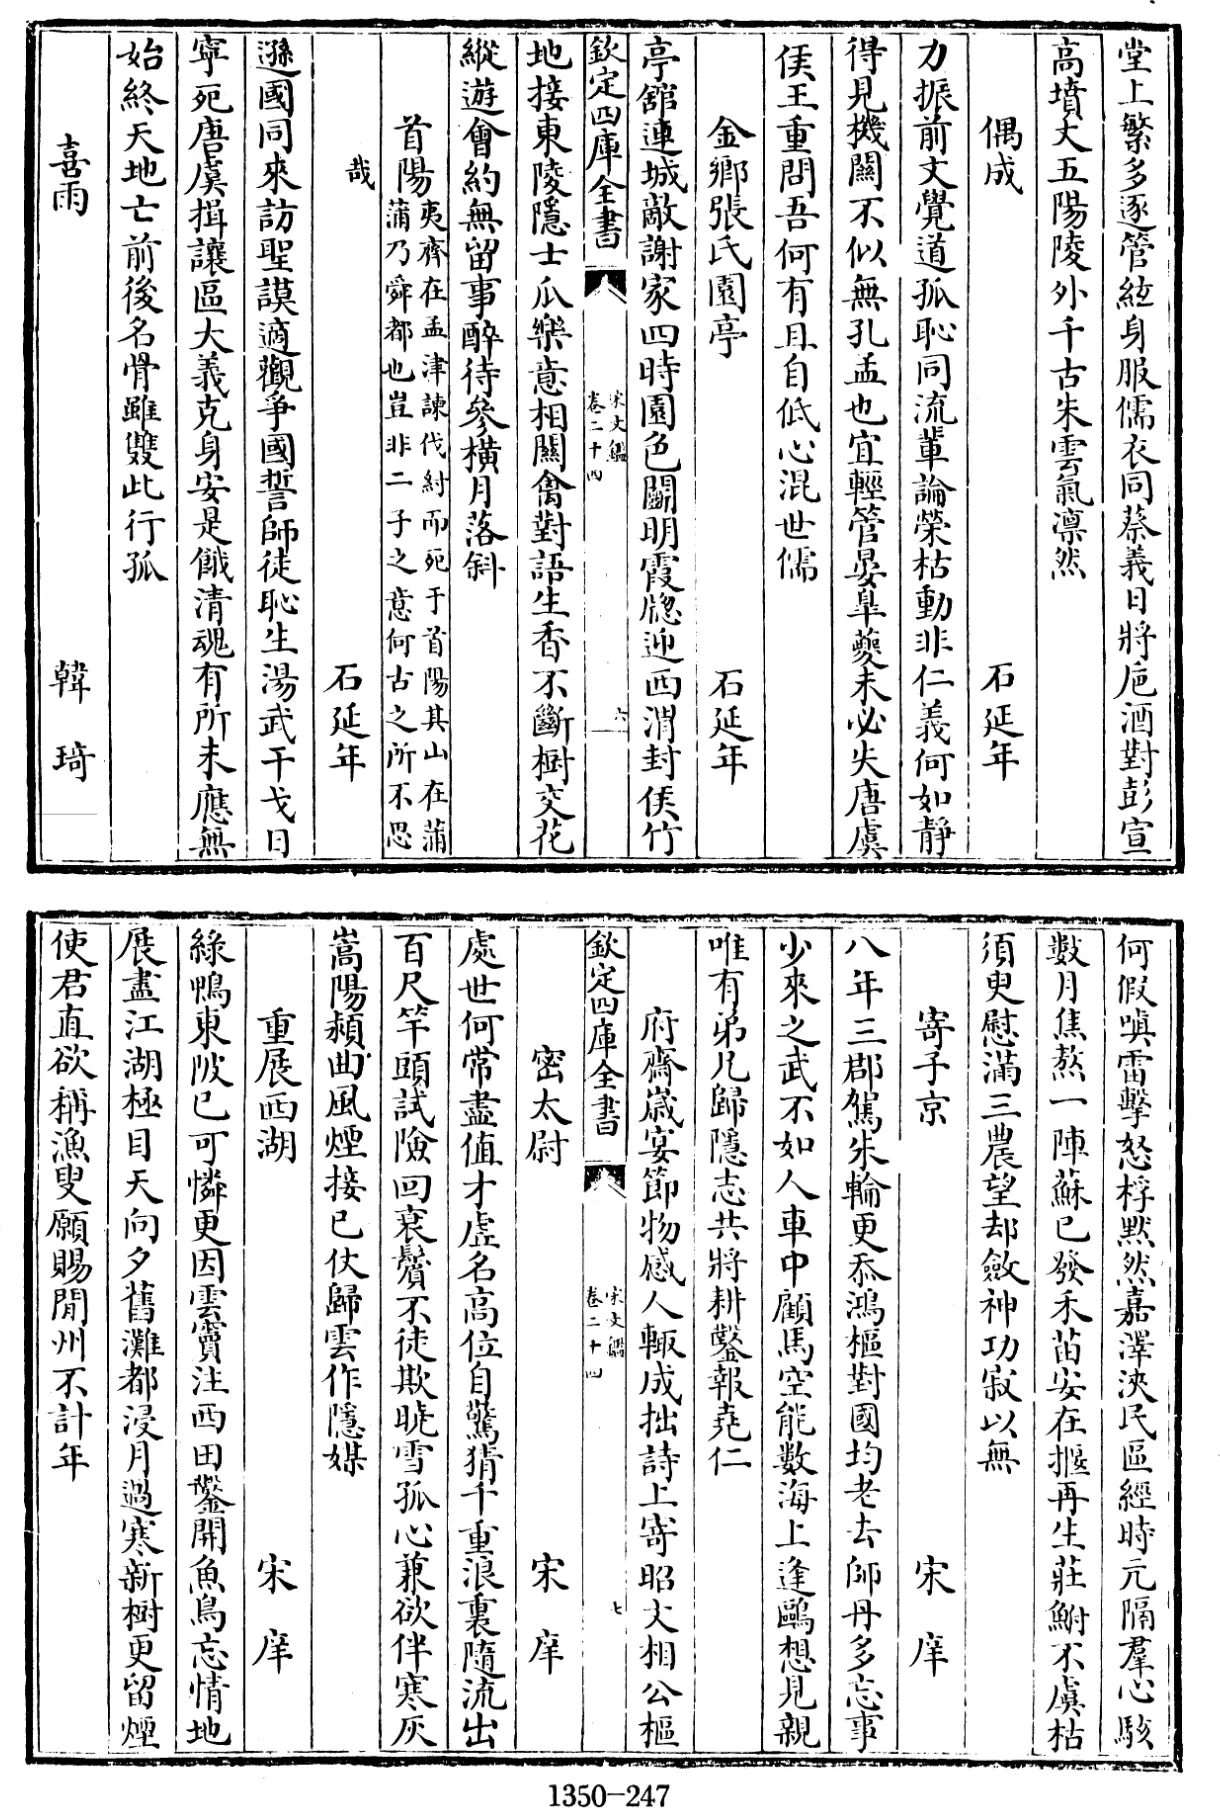 堂上繁多逐管絃身服儒衣同蔡義日將巵酒對彭宣
高墳丈五陽陵外千古朱雲氣凛然
偶成 石延年
力振前文覺道孤恥同流輩論榮枯動非仁義何如靜
得見機關不似無孔孟也宜輕管晏臯夔未必失唐虞
侯王重問吾何有且自低心混世儒
金鄉張氏園亭 石延年
亭舘連城敵謝家四時園色鬬明霞牕迎西渭封侯竹
欽定四庫全書 宋文鑑 卷二十四 六
地接東陵隱士瓜樂意相關禽對語生香不斷樹交花
縱遊會約無留事醉待參橫月落斜
首陽 夷齊在孟津諫伐紂而死于首陽其山在蒲
蒲乃舜都也豈非二子之意何古之所不思
哉 石延年
遜國同來訪聖謨適觀爭國誓師徒恥生湯武干戈日
寧死唐虞揖讓區大義克身安是餓清魂有所未應無
始終天地亡前後名骨雖雙此行孤
喜雨 韓琦
何假嗔雷擊怒桴默然嘉澤浹民區經時元隔羣心駭
數月焦熬一陣蘇已發禾苗安在揠再生莊鮒不虞枯
須臾慰滿三農望却斂神功寂以無
寄子京 宋庠
八年三郡駕朱輪更忝鴻樞對國均老去師丹多忘事
少來之武不如人車中顧馬空能數海上逢鷗想見親
唯有弟兄歸隱志共將耕鑿報堯仁
府齋嵗宴節物感人輙成拙詩上寄昭文相公樞
欽定四庫全書 宋文鑑 卷二十四 七
密太尉 宋庠
處世何常盡值才虚名高位自驚猜千重浪裏隨流出
百尺竿頭試險回衰鬢不徒欺曉雪孤心兼欲伴寒灰
嵩陽潁曲風煙接已仗歸雲作隱媒
重展西湖 宋庠
綠鴨東陂已可憐更因雲竇注西田鑿開魚鳥忘情地
展盡江湖極目天向夕舊灘都浸月過寒新樹更留煙
使君直欲稱漁叟願賜閒州不計年
1350-247